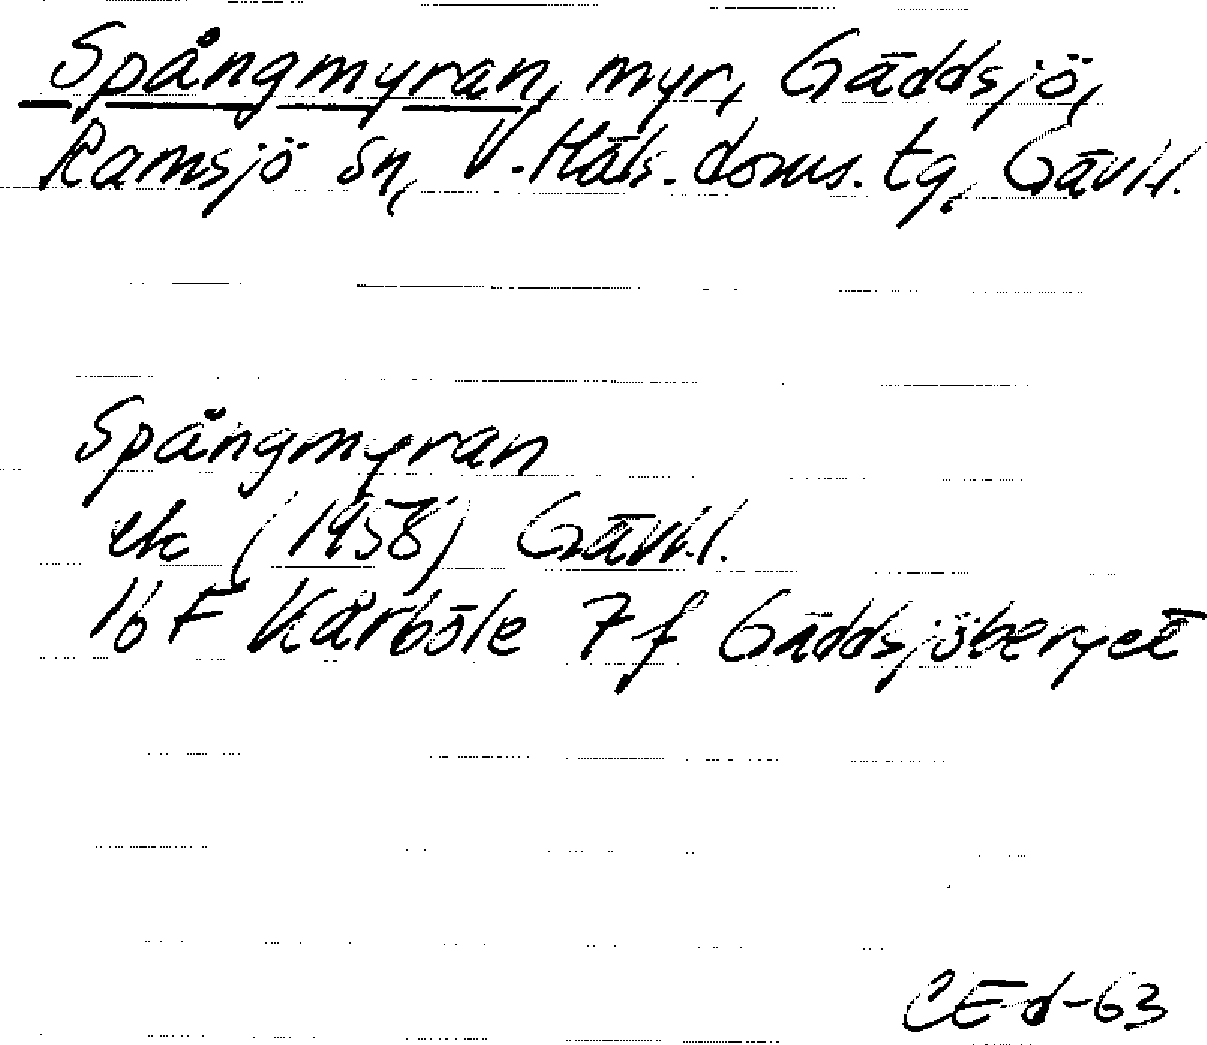 Spångmyran, myr, Gäddsjö,
Ramsjö sn, V. Häls. doms. tg, Gävl.l.
Spångmyran
ek (1958) Gävl.l.
16 F Kårböle 7 f Gäddsjöberget
CEd-63